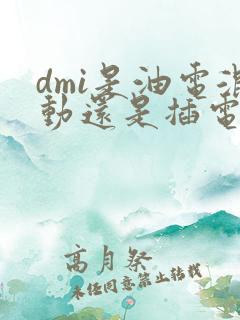 dmi是油電混
動還是插電
高月祭
未经同意禁止转载